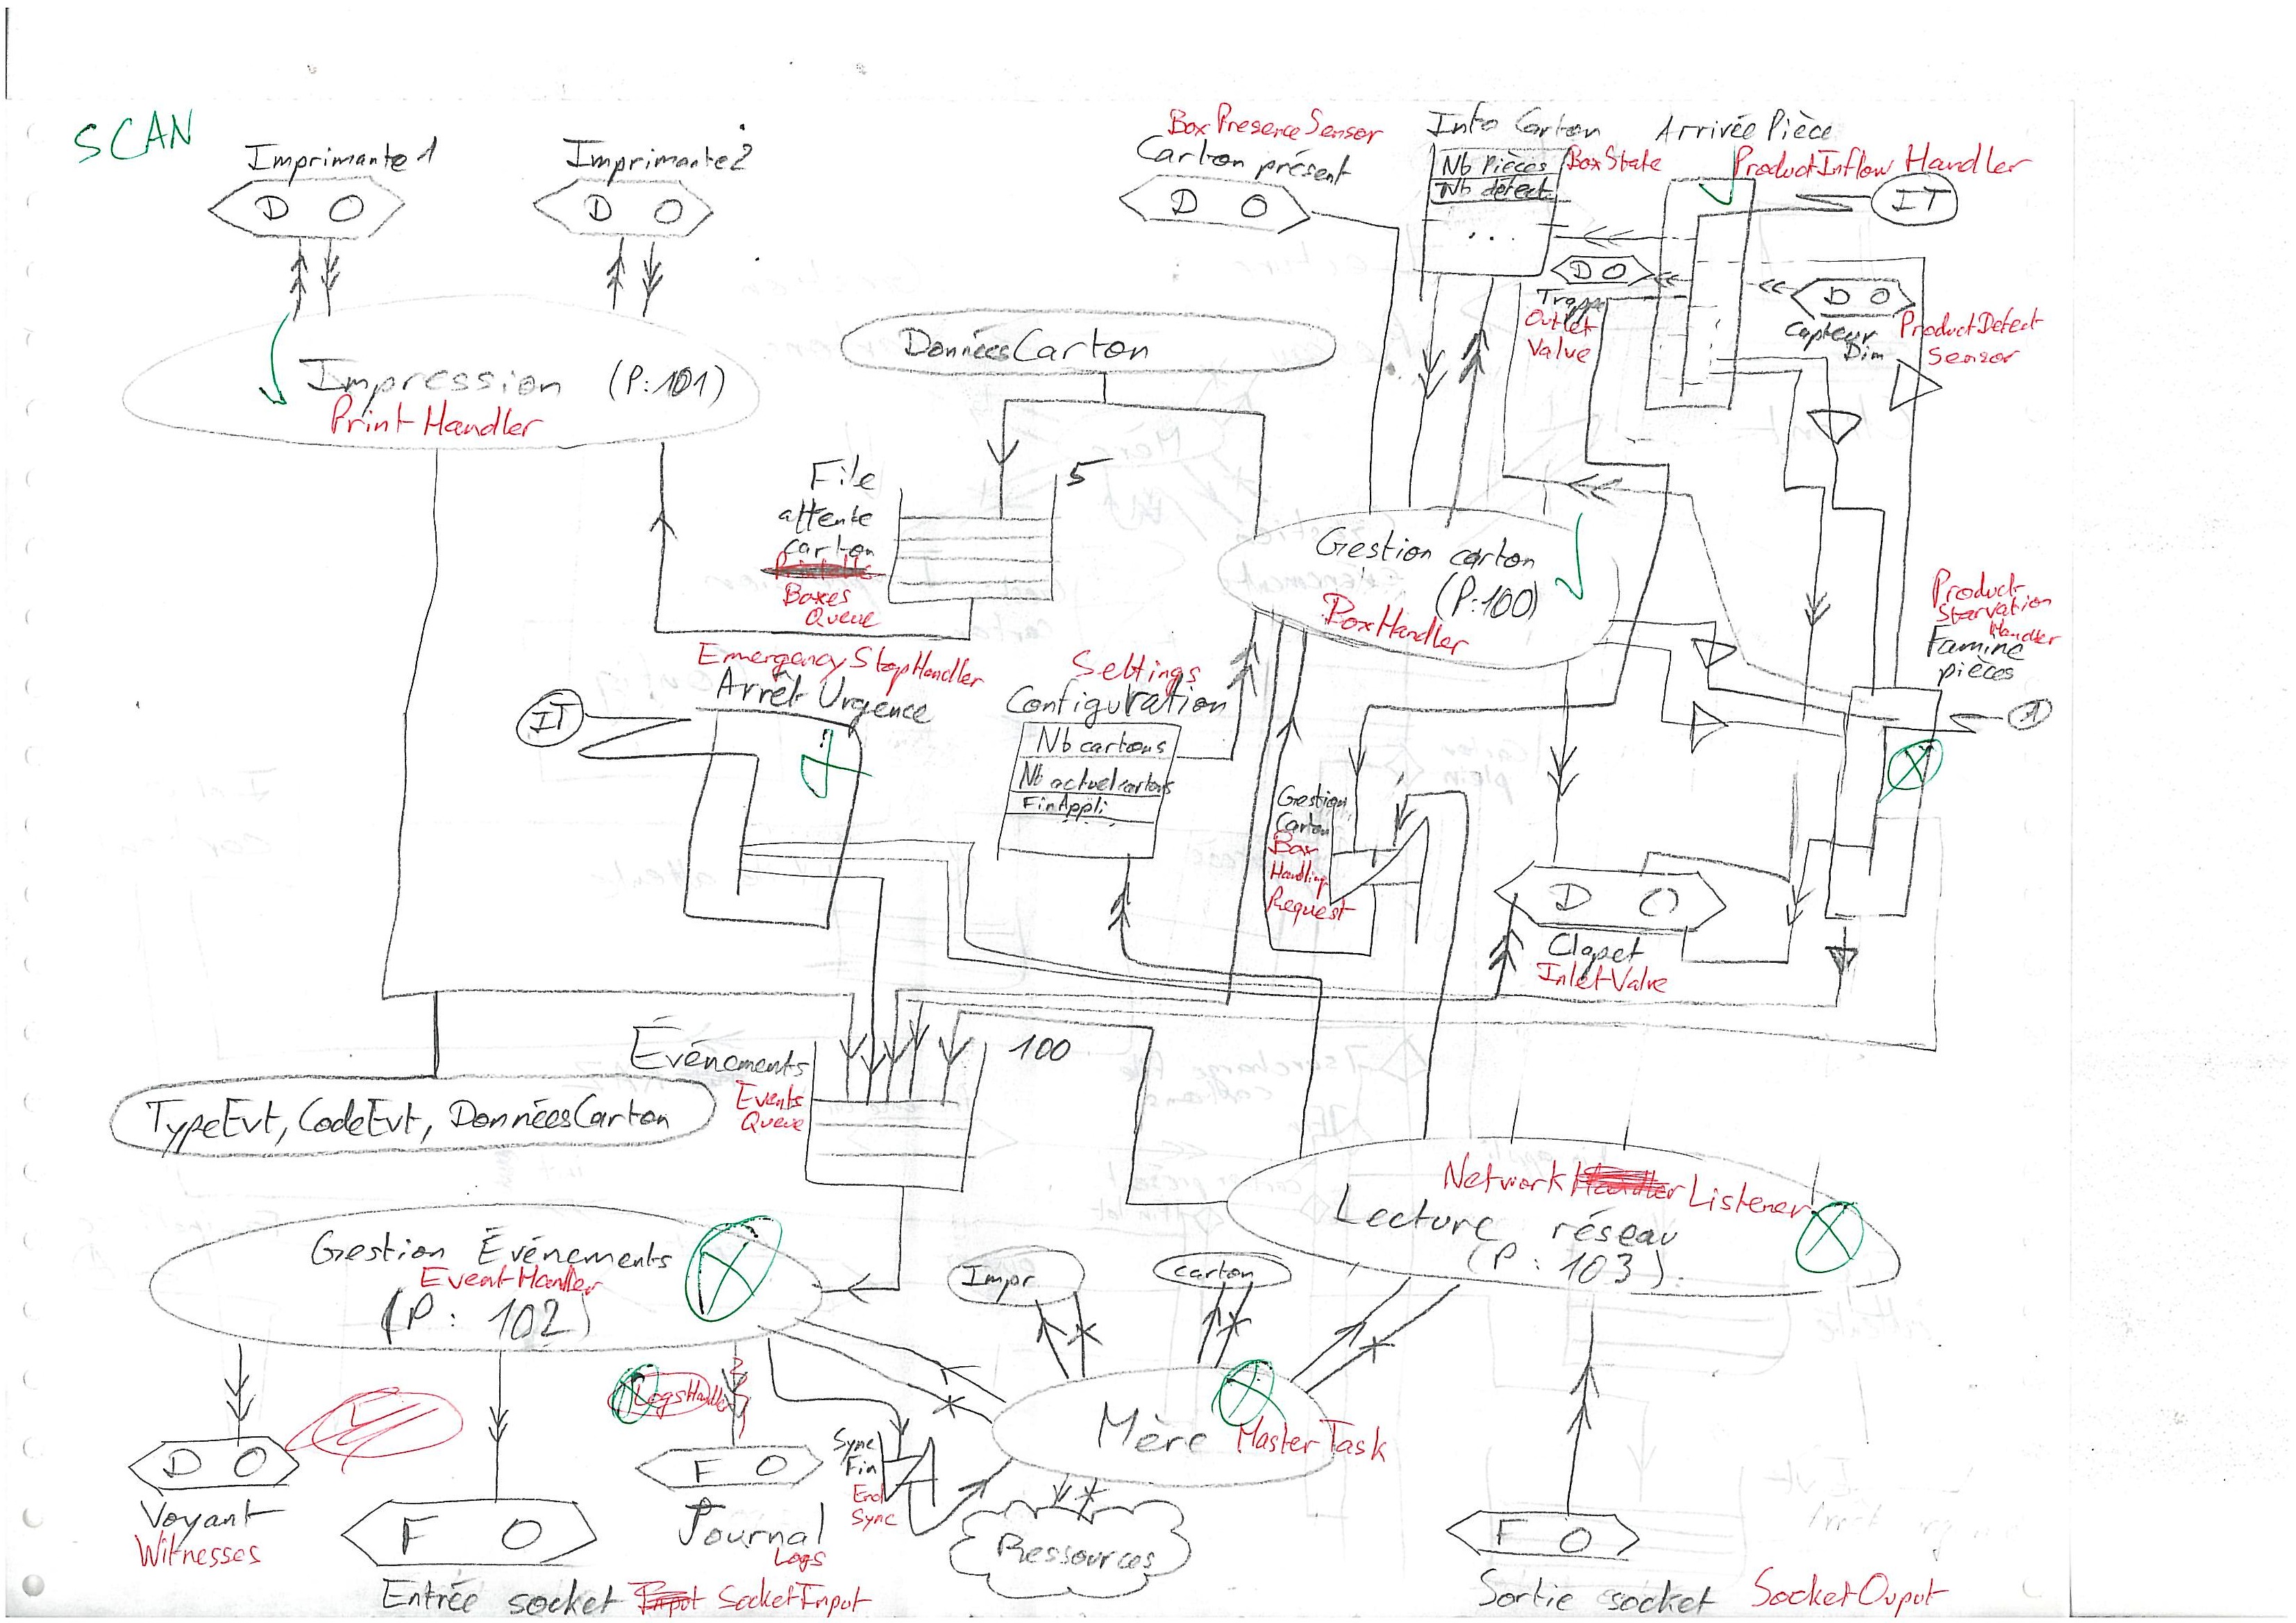 SCAN
Imprimante 1
D O
Imprimante 2
D O
BoxPresenceSensor
Carton présent
D O
Info Carton
Nb pièces
Nb défect.
...
BoxState
Arrivée Pièce
ProductInflow Handler
IT
D O
Trappe
Outlet
Valve
D O
Capteur
Dim
ProductDefect
Sensor
Impression (P:101)
PrintHandler
DonnéesCarton
File
attente
carton
5
Boxes
Queue
Gestion carton
(P:100)
BoxHandler
Product
Starvation
Handler
Famine
pièces
1
EmergencyStopHandler
Arrêt Urgence
IT
Settings
Configuration
Nb cartons
Nb actuel cartons
FinAppli
Gestion
Carton
Box
Handling
Request
D O
Clapet
InletValve
Événements
Events
Queue
100
TypeEvt, CodeEvt, DonnéesCarton
Network Handler Listener
Lecture réseau
(P: 103)
Gestion Événements
EventHandler
(P: 102)
Impr
carton
LogsHandler
Mère MasterTask
D O
Voyant
Witnesses
F O
Entrée socket Input SocketInput
F O
Journal
Logs
Sync
Fin
End
Sync
Ressources
F O
Sortie socket SocketOuput